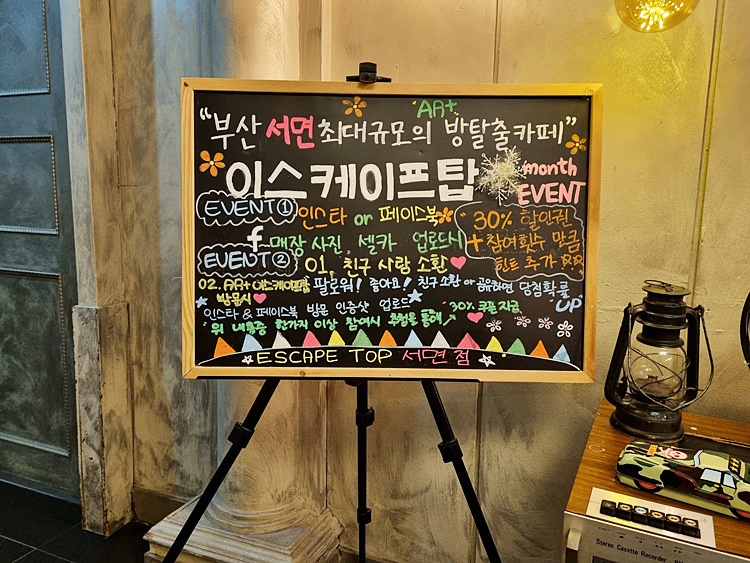 AR+
"부산 서면 최대규모의 방탈출카페"
이스케이프탑
month
EVENT
EVENT① 인스타 or 페이스북
f 매장 사진, 셀카 업로드시
30% 할인권
+ 참여횟수 만큼
힌트 추가
EVENT② 01. 친구 사람 소환
02. AR+ 이스케이프탑 팔로워! 좋아요! 친구 소환 or 공유하면 당첨확률 UP
방문시
인스타 & 페이스북 방문 인증샷 업로드
30% 쿠폰 지급
"위 내용중 한가지 이상 참여시 추첨을 통해
ESCAPE TOP 서면점
Stereo Cassette Recorder